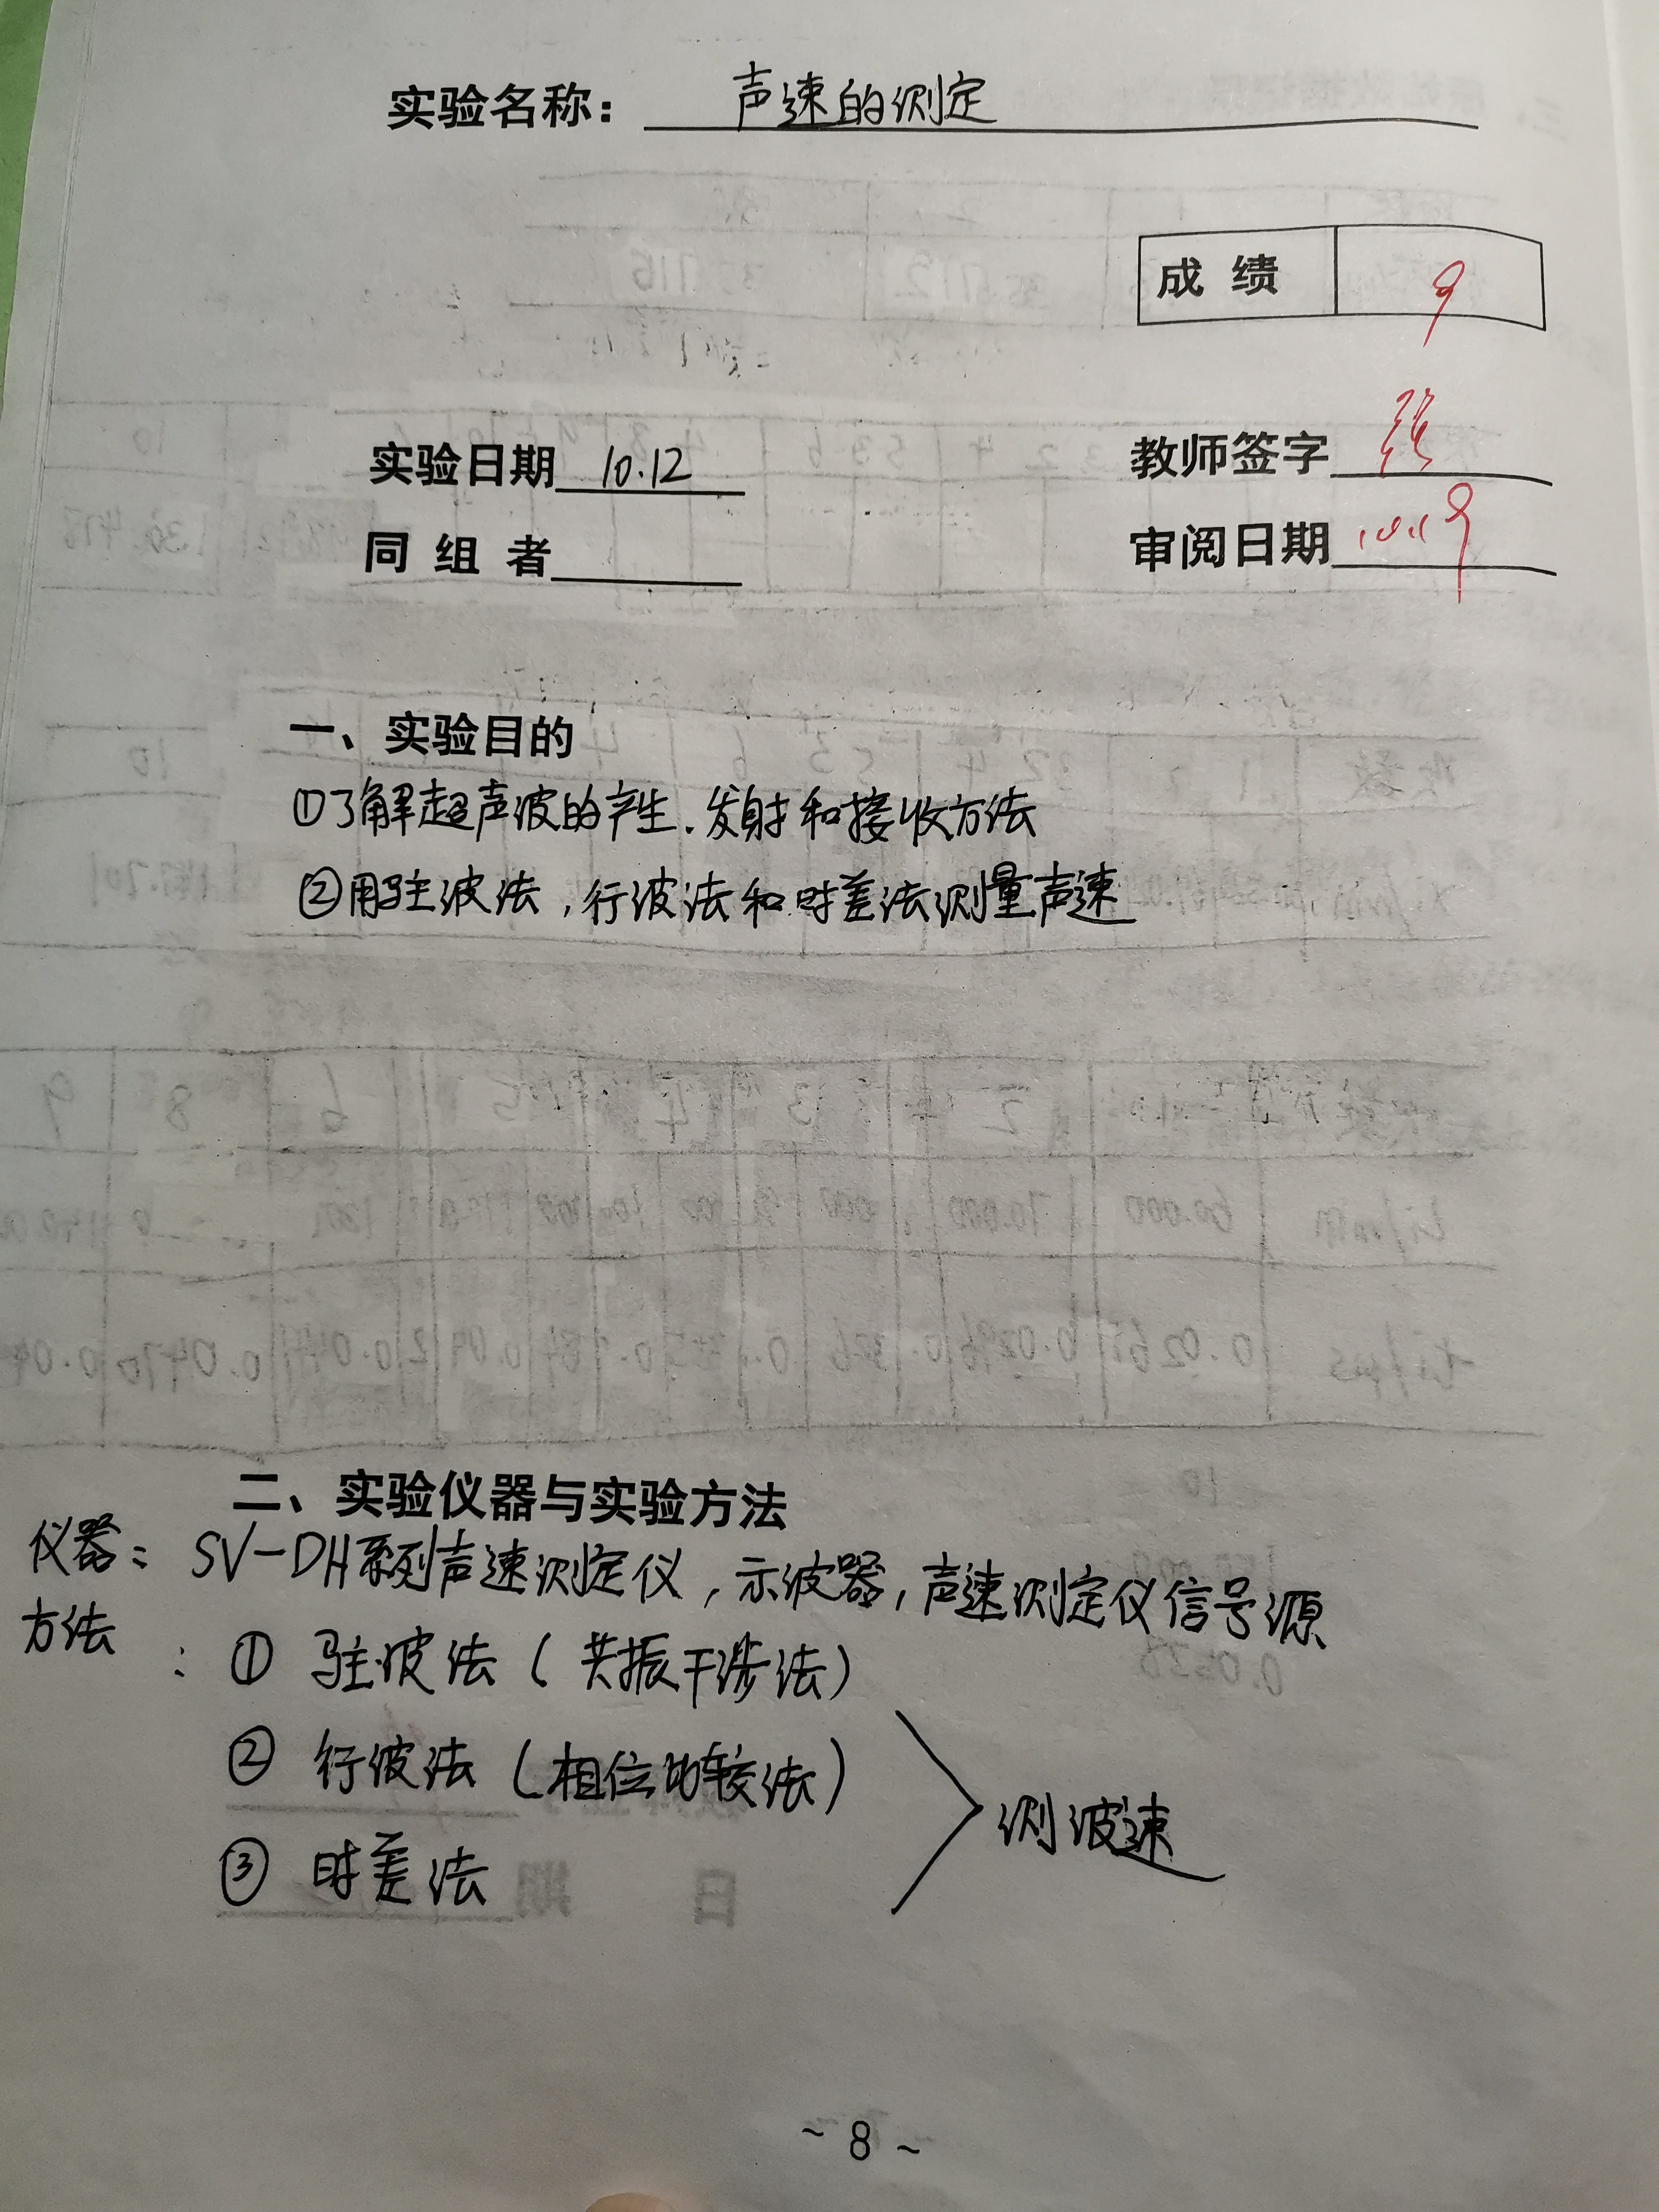 实验名称：声速的测定
成 绩 9
实验日期 10.12
教师签字 张
同 组 者
审阅日期 10.19
一、实验目的
①了解超声波的产生、发射和接收方法
②用驻波法，行波法和时差法测量声速
二、实验仪器与实验方法
仪器：SV-DH系列声速测定仪，示波器，声速测定仪信号源
方法：① 驻波法（共振干涉法）
② 行波法（相位比较法）
测波速
③ 时差法
~ 8 ~